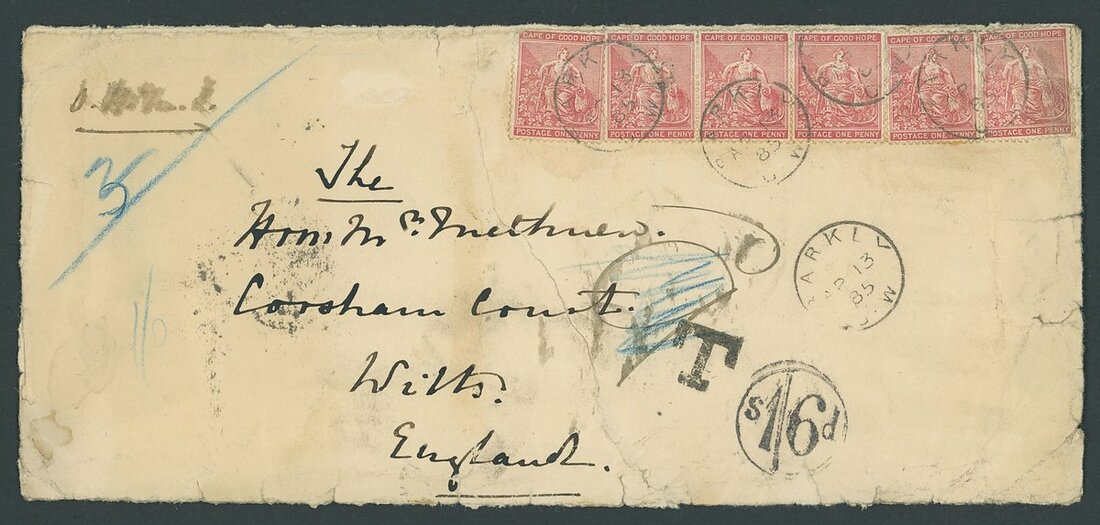 CAPE OF GOOD HOPE CAPE OF GOOD HOPE CAPE OF GOOD HOPE CAPE OF GOOD HOPE CAPE OF GOOD HOPE CAPE OF GOOD HOPE
POSTAGE ONE PENNY POSTAGE ONE PENNY POSTAGE ONE PENNY POSTAGE ONE PENNY POSTAGE ONE PENNY POSTAGE ONE PENNY
BARKLY W
AP 13
85
The
Honble Mrs. Methuen.
Corsham Court.
Wilts.
England.
BARKLY W
AP 13
85
T
s 1/6 d